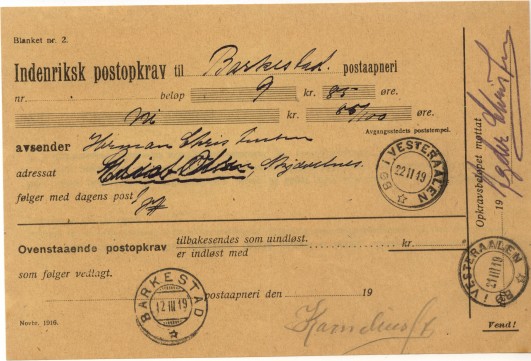 Blanket nr. 2.
Indenriksk postopkrav til Barkestad. postaapneri
nr. beløp 9 kr. 85 øre.
Ni kr. 85/100 øre.
Avgangsstedets poststempel.
avsender Herman Christensen
adressat Edias Olsen,
følger med dagens post
BØ I VESTERAALEN
22 II 19
Ovenstaaende postopkrav tilbakesendes som uindløst.
er indløst med kr.
som følger vedlagt.
postaapneri den 19
BARKESTAD
12 III 19
Novbr. 1916.
Vend!
Opkravsbeløpet mottat
19
BØ I VESTERAALEN
21 III 19